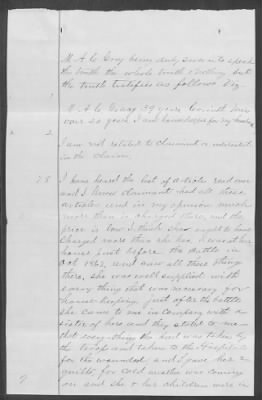 M. A. C. Gray being duly sworn to speak
the truth the whole truth & nothing but
the truth testifies as follows Viz.
M A C Gray 39 years Corinth Miss
over 20 years I am housekeeper for my
2 2
I am not related to claimant or interested
in the Claim.
75 I have heard the list of articles read over
and I know claimant had all those
articles and in my opinion much
more than is charged there, and the
price is low I think she ought to have
charged more than she has. I was at her
house just before the battle
of 1862, and saw all those things
there, she was well supplied with
every thing that was necessary for
house keeping, just after the battle
she came to me in company with a
sister of hers and they stated to me
that every thing she had was taken by
the troops and taken to the Hospitals
for the wounded, and I gave her 2
quilts, for cold weather was coming
on and she & her children were in